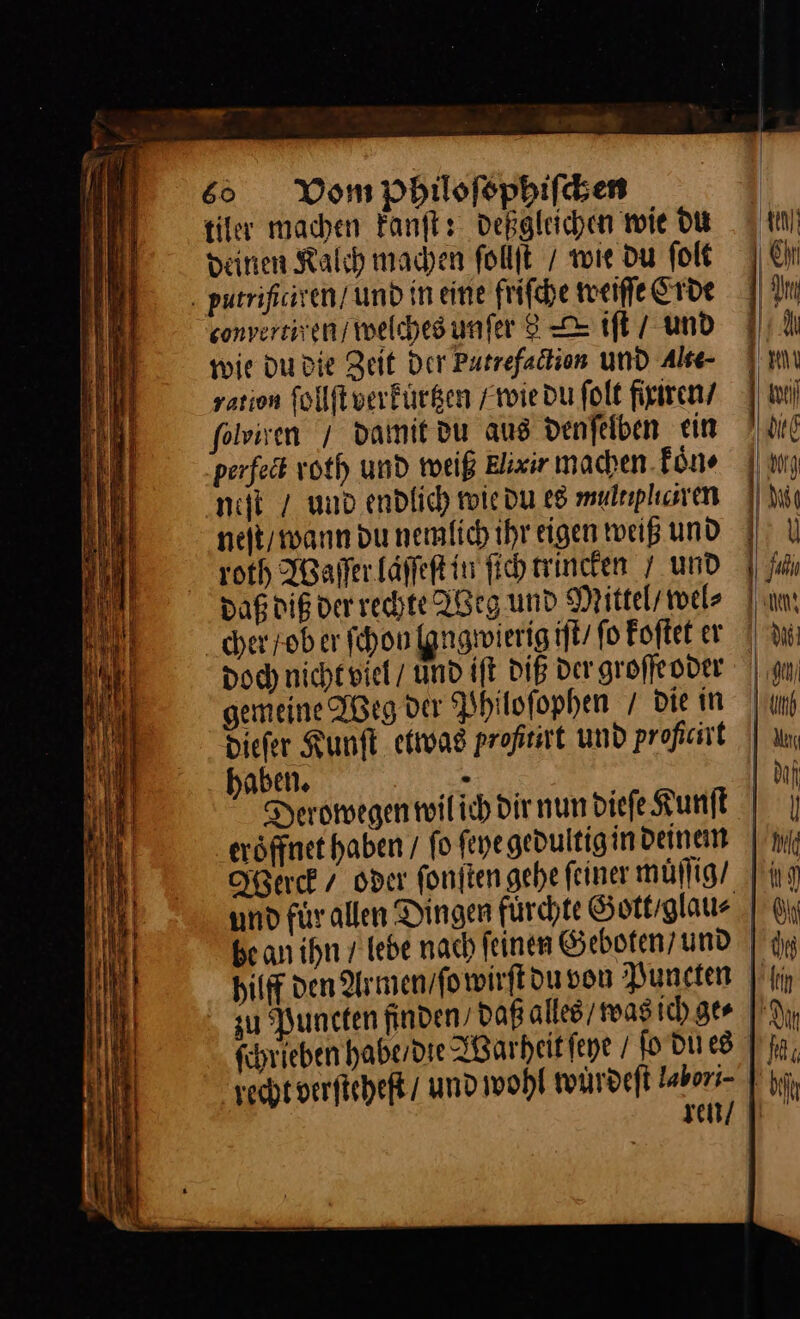 60 Vom Philoſophiſchen
tiler machen kanſt: deßgleichen wie du
deinen Kalch machen ſollſt / wie du ſolt
putrificiren / und in eine friſche weiſſe Erde
convertiren / welches unſer ☿ ♎ iſt / und
wie du die Zeit der Putrefaction und Alte-
ration ſollſt verkürtzen / wie du ſolt fixiren/
ſolviren / damit du aus denſelben ein
perfect roth und weiß Elixir machen kön⸗
neſt / und endlich wie du es multipliciren
neſt/ wann du nemlich ihr eigen weiß und
roth Waſſer läſſeſt in ſich trincken / und
daß diß der rechte Weg und Mittel/ wel⸗
cher / ob er ſchon langwierig iſt/ ſo koſtet er
doch nicht viel / und iſt diß der groſſe oder
gemeine Weg der Philoſophen / die in
dieſer Kunſt etwas profitirt und proficirt
haben.
Derowegen wil ich dir nun dieſe Kunſt
eröffnet haben / ſo ſeye gedultig in deinem
Werck / oder ſonſten gehe ſeiner müſſig/
und für allen Dingen fürchte Gott/ glau⸗
be an ihn / lebe nach ſeinen Geboten/ und
hilff den Armen/ ſo wirſt du von Puncten
zu Puncten finden/ daß alles/ was ich ge⸗
ſchrieben habe/ die Warheit ſeye / ſo du es
recht verſteheſt / und wohl würdeſt labori-
ren/